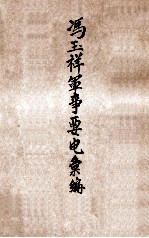 馮玉祥軍事要电彙編